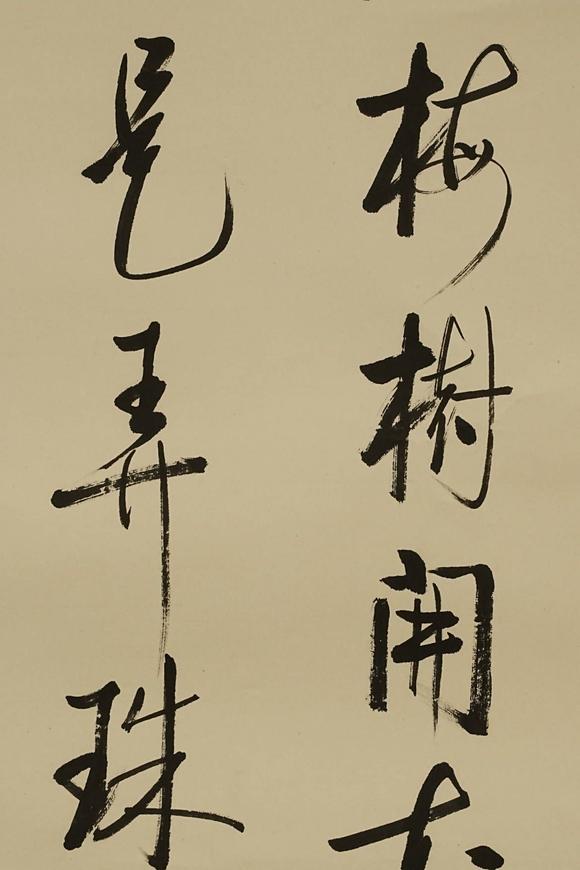 梅樹開
是弄珠